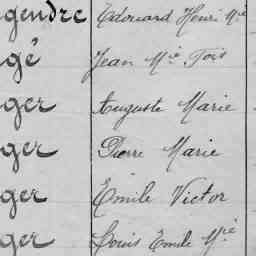 gendre Edouard Henri Mie
gé Jean Mie Fois
ger Auguste Marie
ger Pierre Marie
ger Emile Victor
ger Louis Emile Mie